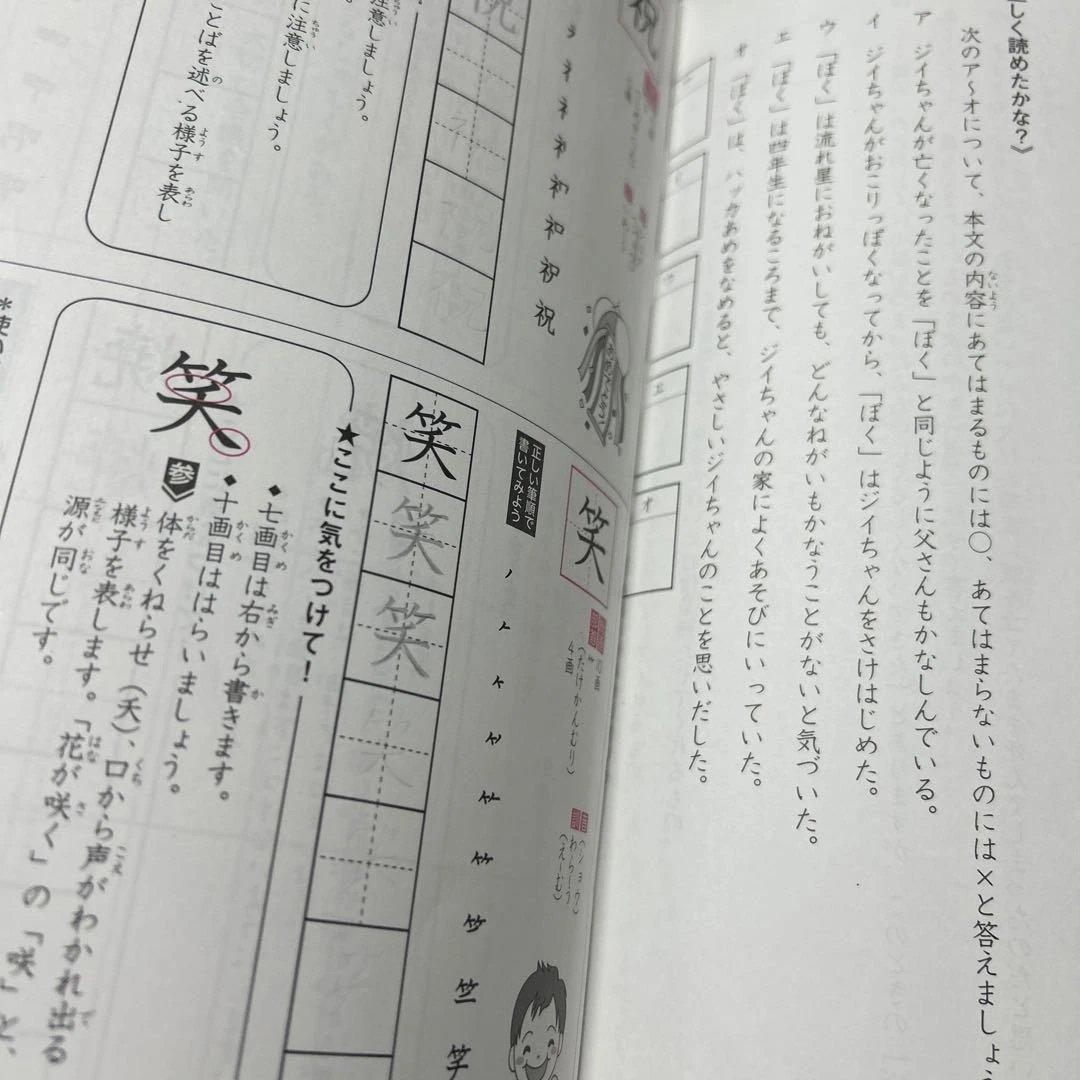 しく読めたかな？》
次のア〜オについて、本文の内容にあてはまるものには○、あてはまらないものには×と答えましょ
ないよう
ア ジイちゃんが亡くなったことを「ぼく」と同じように父さんもかなしんでいる。
イ ジイちゃんがおこりっぽくなってから、「ぼく」はジイちゃんをさけはじめた。
ウ 「ぼく」は流れ星におねがいしても、どんなねがいもかなうことがないと気づいた。
エ 「ぼく」は四年生になるころまで、ジイちゃんの家によくあそびにいっていた。
オ 「ぼく」は、ハッカあめをなめると、やさしいジイちゃんのことを思いだした。
ウ
エ
オ
祝
ネ
ネ
祀
祝
祝
祝
意しましょう。
ちゅうい
に注意しましょう。
ことばを述べる様子を表し
の
ようす
あらわ
笑
10画
(たけかんむり)
4画
音
(ショウ)
訓
わら-う
(え-む)
正しい筆順で
書いてみよう
竺
笑
笑
笑
★ここに気をつけて！
笑
◆七画目は右から書きます。
かくめ
みぎ
か
◆十画目ははらいましょう。
かくめ
参
体をくねらせ（夭）、口から声がわかれ出る
からだ
くち
こえ
で
様子を表します。「花が咲く」の「咲」と、
ようす
あらわ
はな
さ
源が同じです。
おな
＊使い